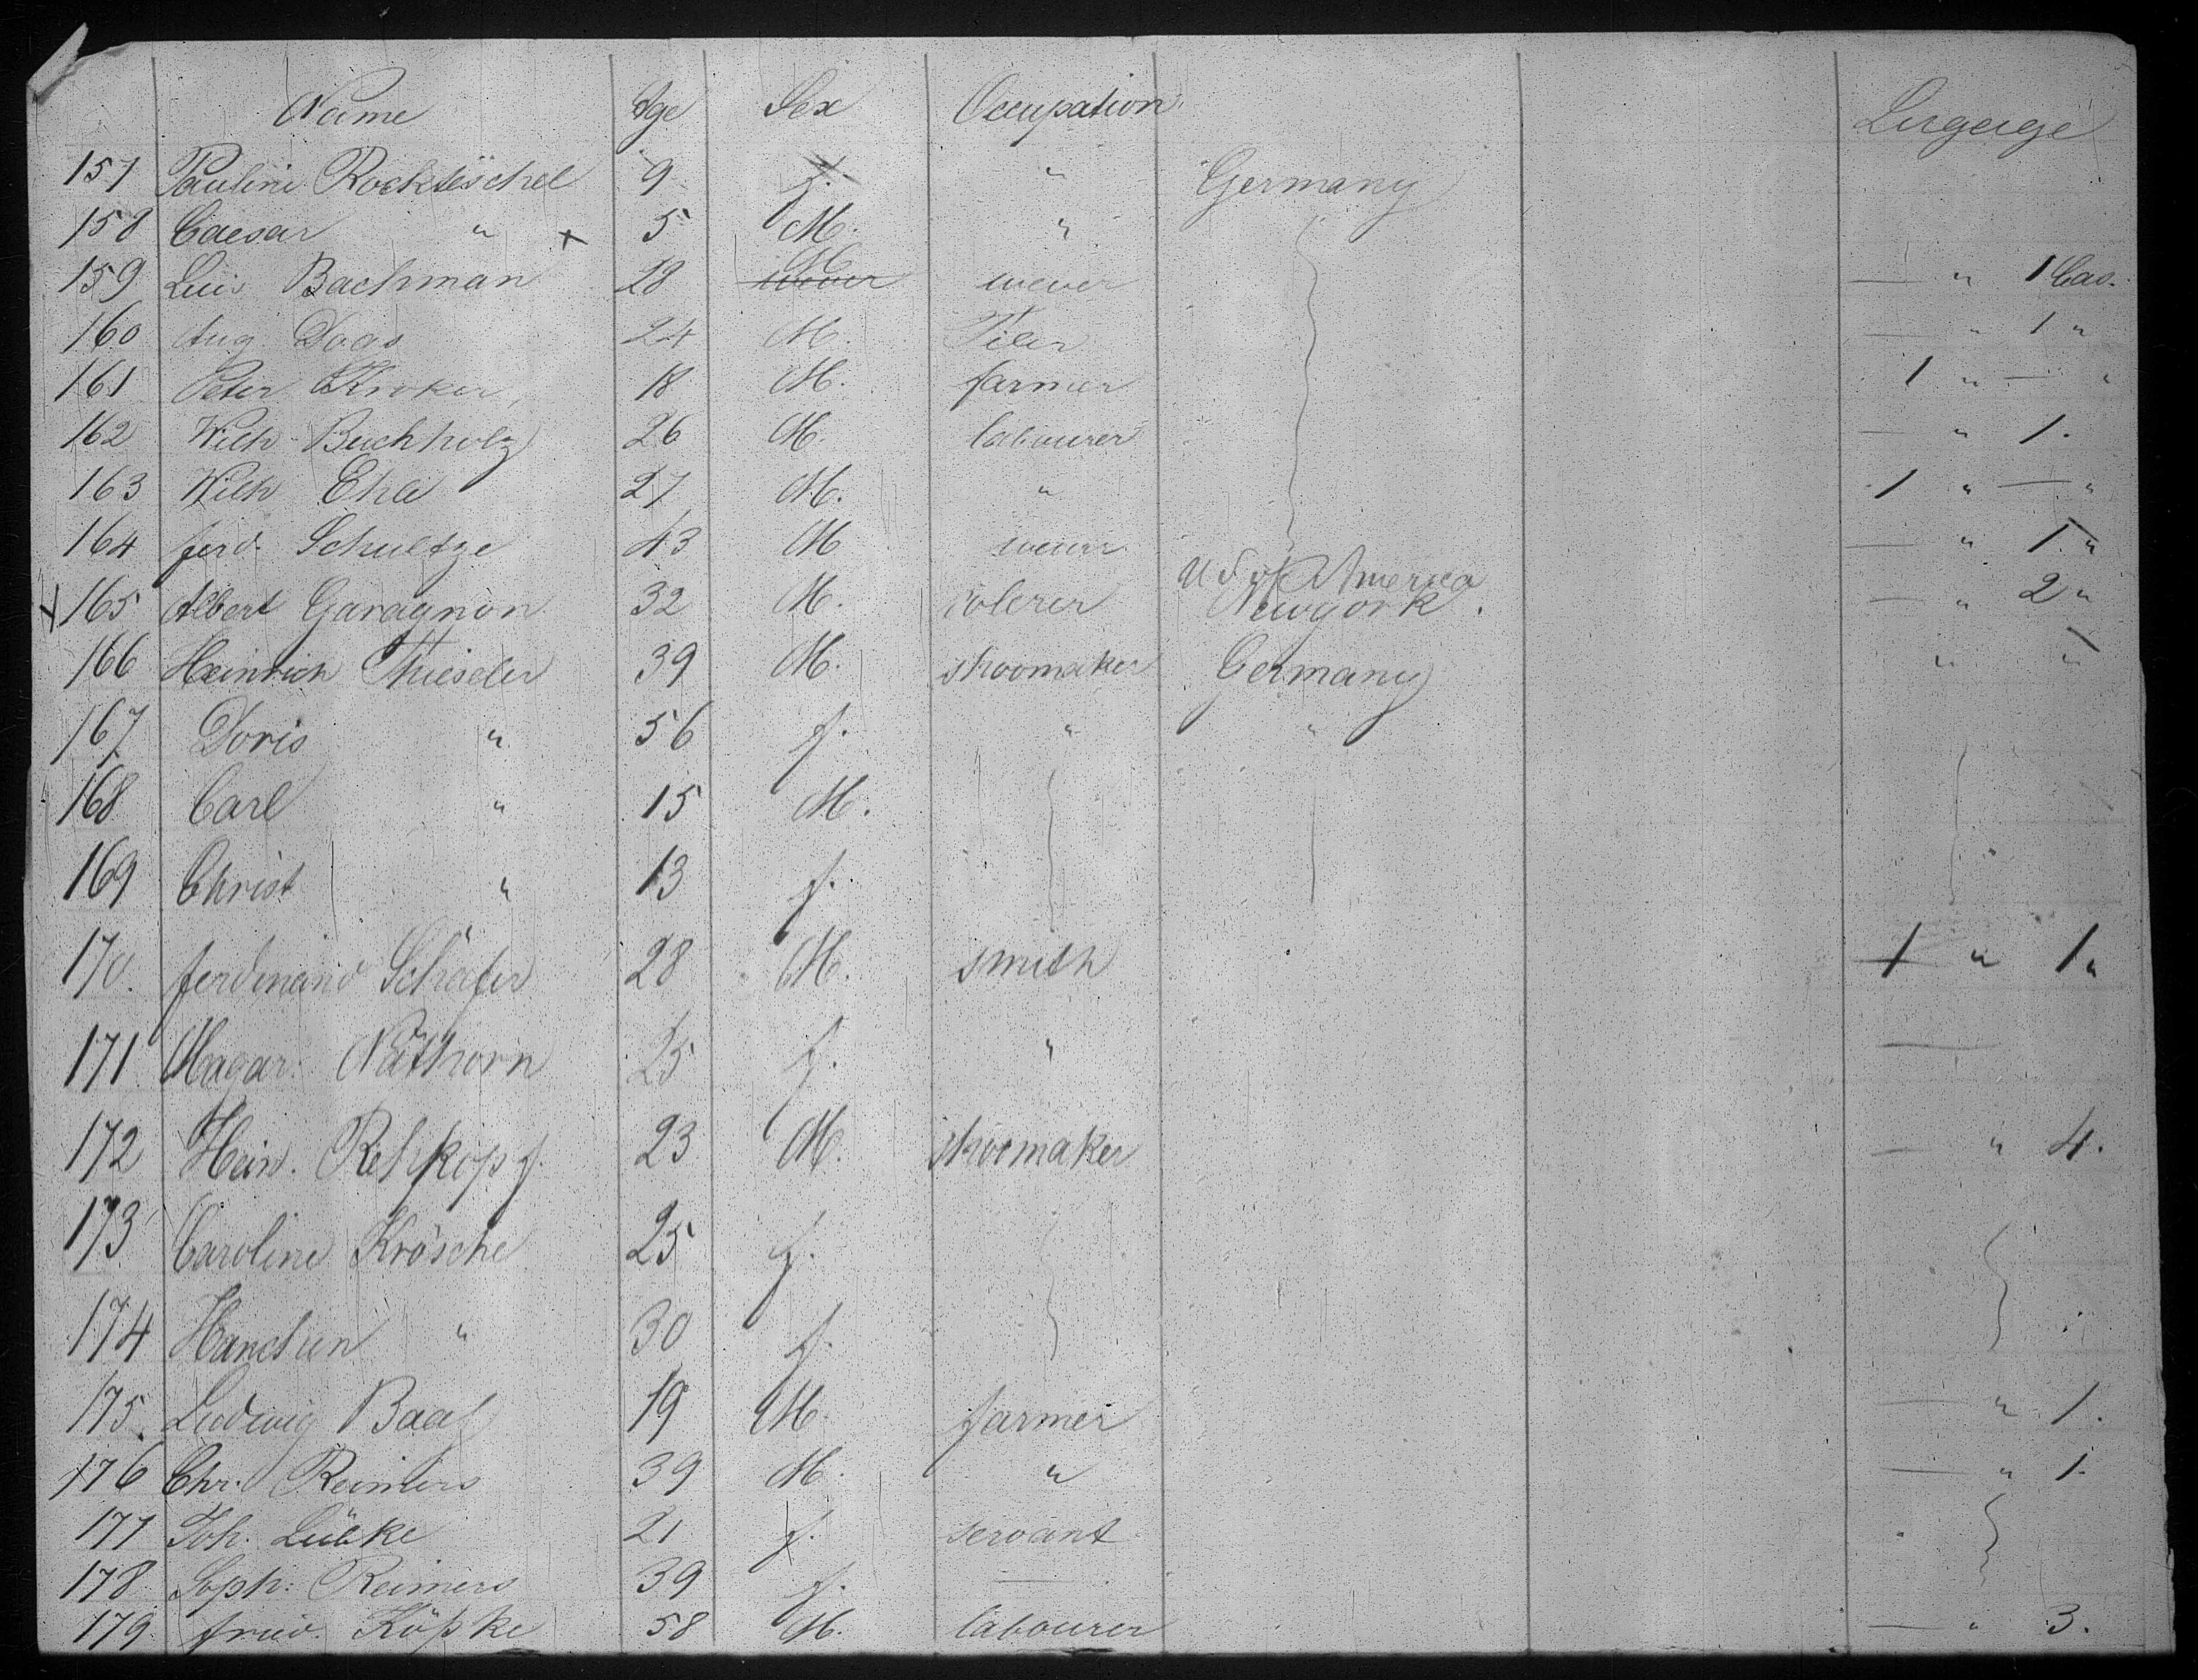 Name Age Sex Occupation. Lugeige
157 Pauline Rocktäschel 9 f. " Germany
158 Caesar " + 5 M. "
159 Luis Bachman 28 M wever wever — " 1 Cas.
160 Aug. Daas 24 M. Tiler — " 1 "
161 Peter Kroker, 18 M. farmer 1 " — "
162 Wilh. Buchholz 26 M. labourer — " 1.
163 Wilh Ehle 27 M. " 1 " — "
164 ferd. Schultze 43 M wever — " 1. "
U S of America
165 Albert Garagnon 32 M. Newyork. — " 2 "
166 Heinrich Thiesler 39 M. shoomaker Germany " "
167 Doris " 56 f. " "
168 Carl " 15 M.
169 Christ " 13 f. "
170. ferdinand Schäfer 28 M. smith 1 " 1 "
171 Magar. Näthorn 25 f. " —
172 Hein. Rehkopf. 23 M. shoemaker — " 4.
173 Caroline Krösche 25 f.
174 Hanchen " 30 f.
175. Ludwig Baaf 19 M. farmer — " 1.
176 Chr. Reimers 39 M. " — " 1.
177 Joh. Lübke 21 f. servant "
178 Soph: Reimers 39 f. —
179 fried. Köpke 58 M. labourer — " 3.